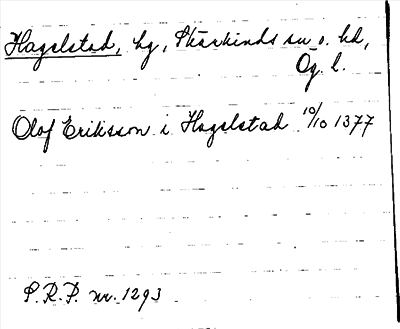 Hagelstad, by, Skärkinds sn o. hd,
Ög. l.
Olof Eriksson i Hagelstad 10/10 1377
S.R.P. nr. 1293